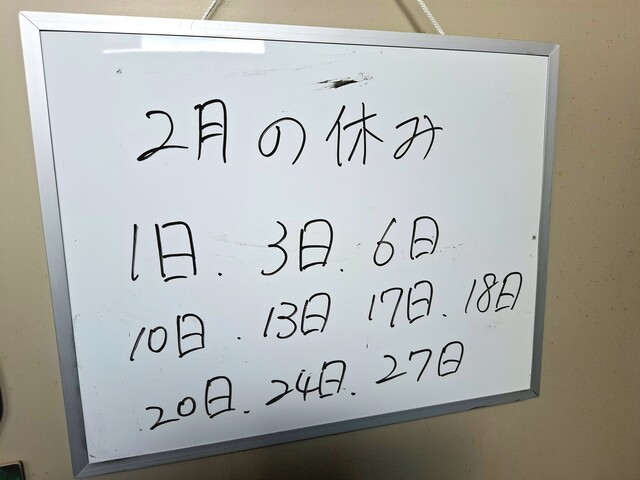 2月の休み
1日.3日.6日
10日.13日 17日.18日
20日.24日.27日